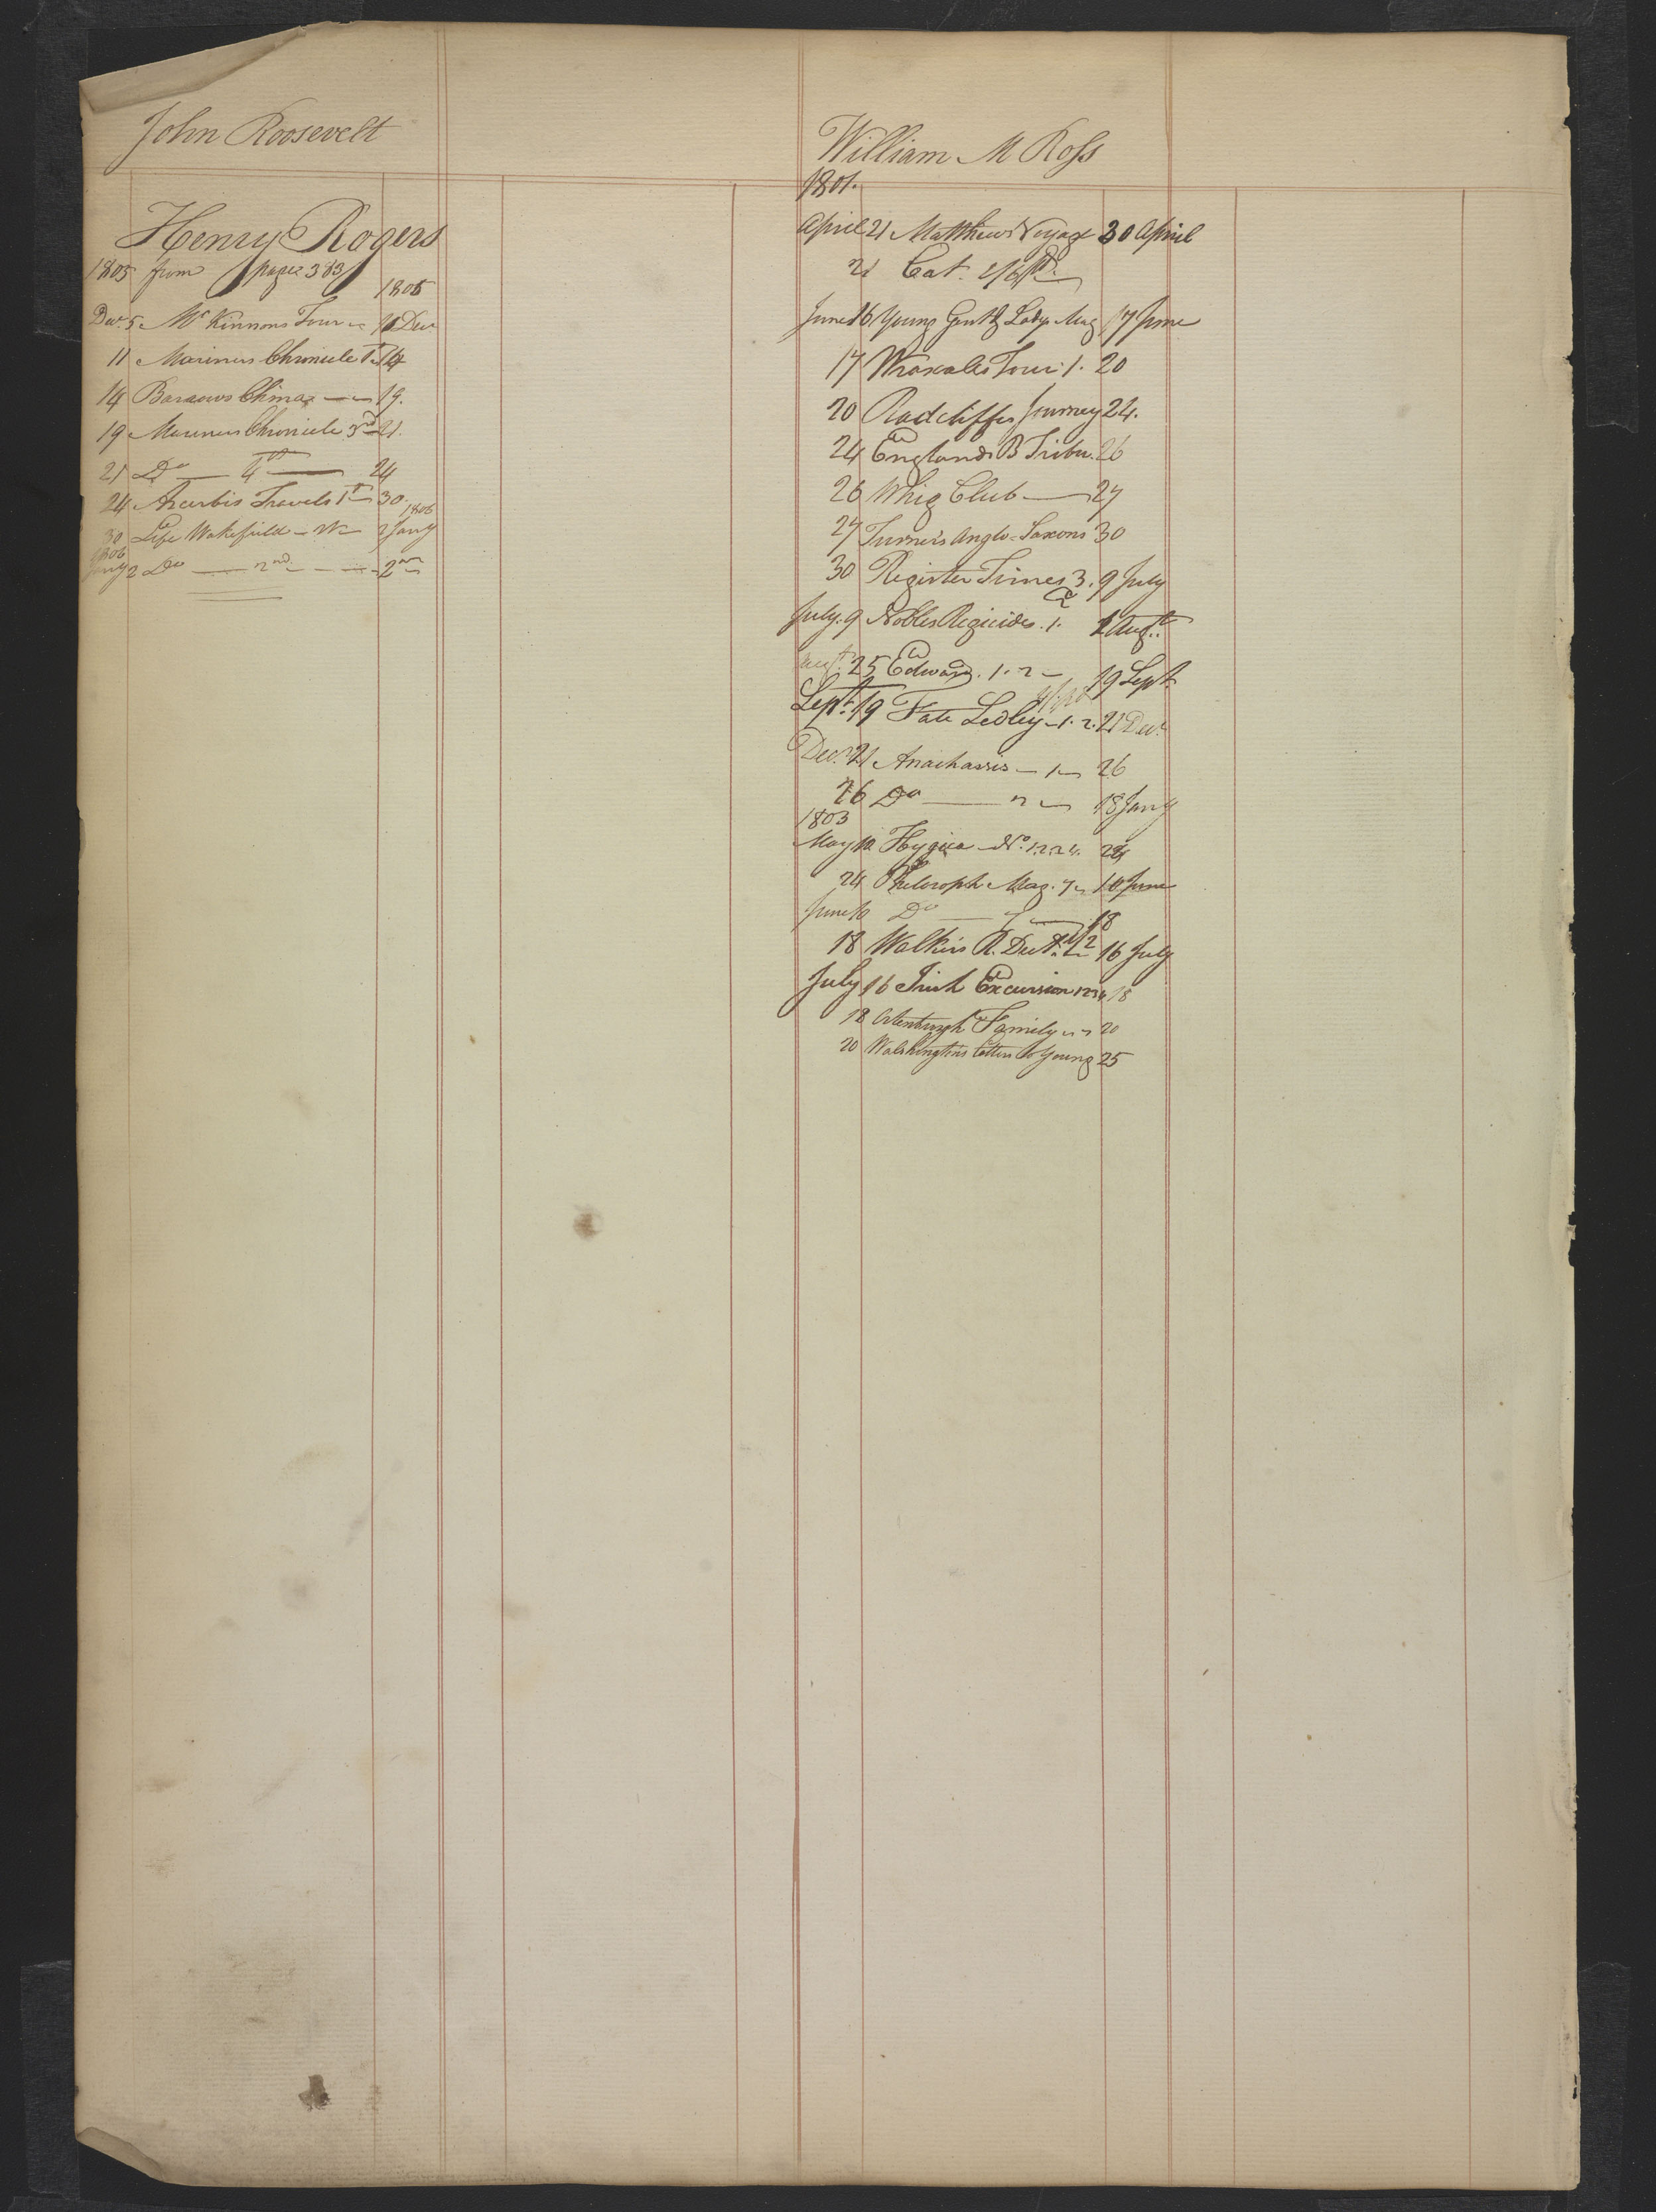 John Roosevelt
Henry Rogers
1805 from page 383
1805
Decr. 5 McKinnons Tour 11 Decr
11 Mariners Chronicle 1st 14
14 Barrows China 19.
19 Mariners Chronicle 3rd 21.
21 Do 4th 24
24 Acerbis Travels 1st 30.
1806
30 Life Wakefield 2 Jany
1806
Jany 2 Do 2nd
William M Ross
1801.
April 21 Matthews Voyage 30 April
21 Cat.
June 16 Young Gent & Ladys Mag 17 June
17 Wraxalls Tour 1. 20
20 Radcliffes Journey 24.
24 Englands B Tribu. 26
26 Whig Club 27
27 Turners Anglo-Saxons 30
30 Register Times 3. 9 July
July. 9 Nobles Regicides. 1. 2 Augt.
Augt. 25 Edward. 1. 2 19 Sept
Sept. 19 Fate Sedley 1. 2. 21 Decr.
Decr. 21 Anacharsis 1 26
26 Do 2 18 Jany
1803
May 10 Hygiea No. 1.2.3.4. 24
24 Philosoph Mag. 10 June
June 10 Do 18
18 Walkers R. Dect. 16 July
July 16 Irish Excursion 1234 18
18 Ortenburgh Family 20
20 Washingtons letters to Young 25